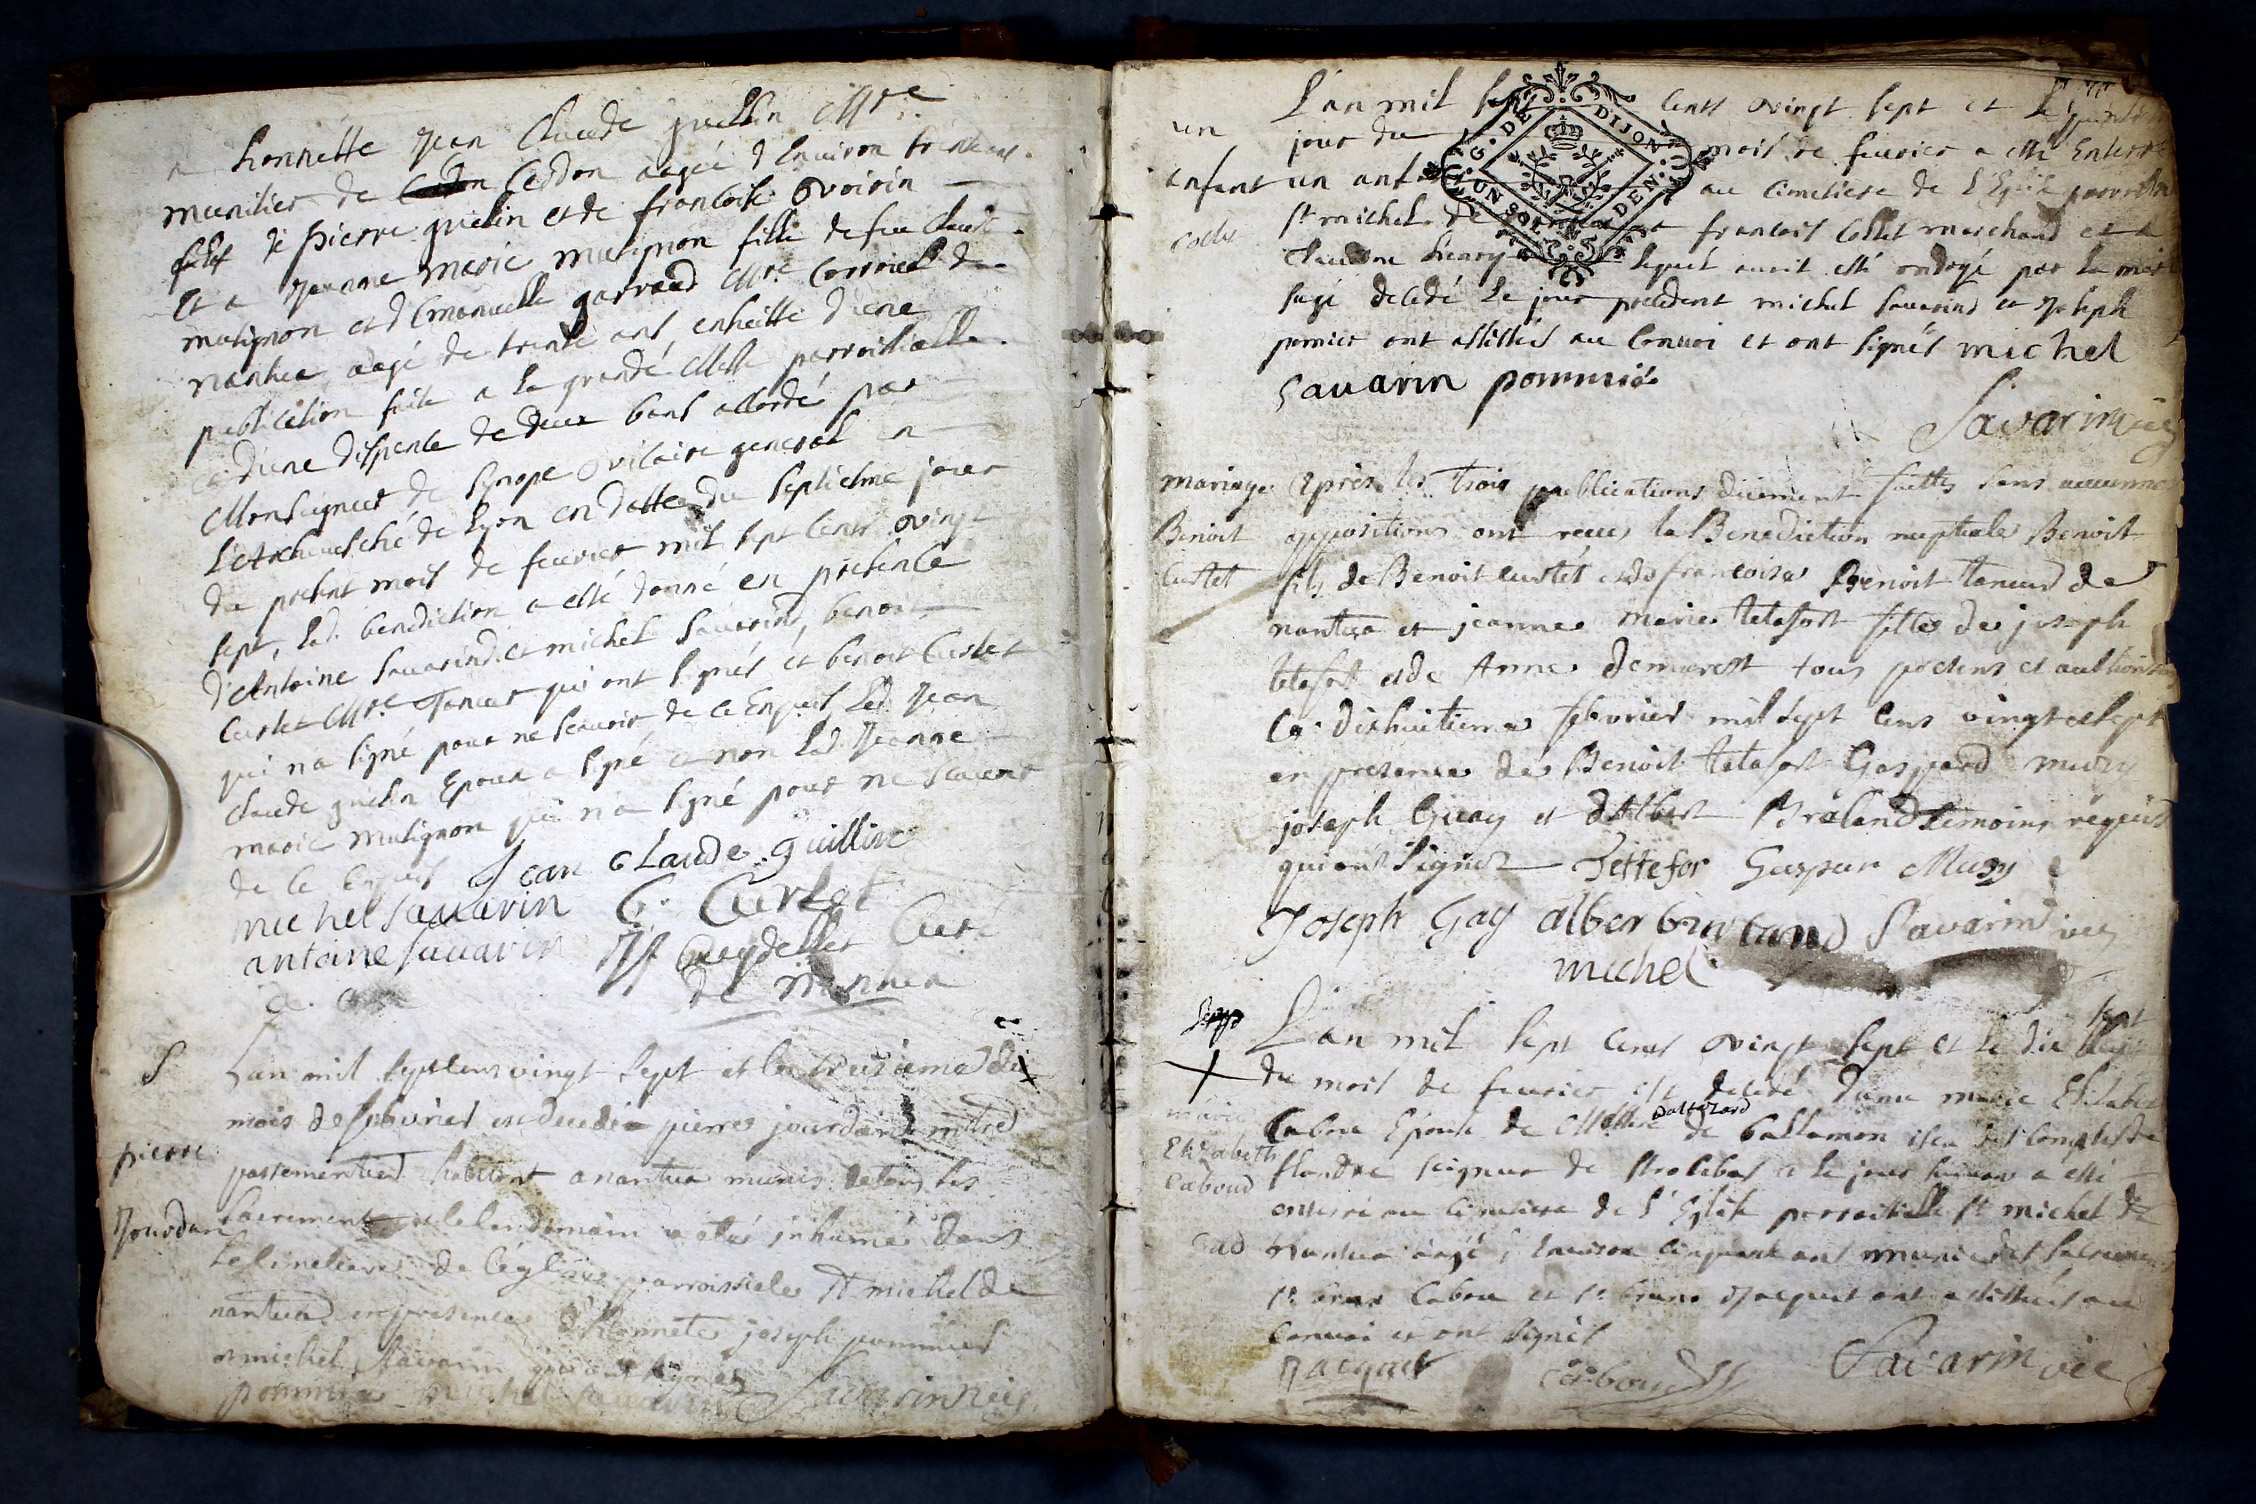 a honnette Jean Claude guillin Mtre
munitier de Cerdon aagée d'environ trente ans
fils de pierre guillin et de francoise voirin
et a Jeanne marie matignon fille de feu Claude
matignon et d'Emanuelle garraud Mtre Corroieur de
nantua aagé de trente ans, ensuitte d'une
publication faite a la grande Messe parroissialle
et d'une dispense de deux bans accordés par
Monseigneur de Synope vicaire general en
l'Archeveché de Lyon en datte du septiesme jour
du present mois de feuvrier mil sept cents vingt
sept, lad. benediction a esté donné en presence
d'Antoine Savarin et michel Savarin, benoit
Curlet Mtre Tanneur qui ont signés et benoit Curlet
qui n'a signé pour ne scavoir de ce Enquis led. Jean
Claude guillin Epoux a signé et non lad. Jeanne
marie matignon qui n'a signé pour ne scavoir
de ce enquis Jean Claude guillin
michel Savarin C. Curlet
antoine Savarin Cuydellet Curé
de nantua
S L'an mil sept cens vingt sept et le treisieme du
mois de febvrier est decedé pierre jourdan mtre
pierre passementier habitant a nantua munis de tous les
Jourdan sacrements et le lendemain a etés inhumé dans
le cimetiere de l'église parroissiele St michel de
nantua en presence d'honnete joseph pommier
et michel Savarin qui ont signés
pommier michel Savarin Savarin vic
L'an mil sept cents vingt sept et le
un jour du mois de feuvrier a esté Enterré
enfant un enfant au cimetiere de l'Eglise parroissialle
St michel de francois Collet marchand et a
Collet Claudine henry lequel auroit esté ondoyé par la mere
sage decedé le jour precedent michel Savarin et Joseph
pomier ont assistés au Convoi et ont signés michel
Savarin pommié
Savarin vic
mariage Après les trois publications düement faittes sans aucunne
Benoit opposition ont receu la Benediction nuptiale Benoit
Curlet fils de Benoit Curlet et de francoise Benoit taneur de
nantua et jeanne marie tetafort fille de joseph
tetafort et de Anne demurest tous presens et
Ce dixhuitieme febvrier mil sept cens vingt et sept
en presence de Benoit tetafort Gaspard muzy
joseph Guay et dAlbert Braland temoins requis
qui ont signer Tettefor Gaspar Muzy
Joseph Gay alber braland Savarin vic
michel
L'an mil sept cents vingt sept et le dix sept
du mois de feuvrier est decedé dame marie Elisabet
marie Cabou Epouse de Messire Baltazard de Ballamon
Elizabeth flandre seigneur de et le jour suivant a esté
Caboud enterré au Cimetiere de l'Eglise parroissialle St michel de
Nantua aagé d'Environ Cinquante ans munie des sacrements
Sr Cabou et Sr bruno Jacquet ont assistés au
convoi et ont signés
Jacquet Caboud Savarin vic